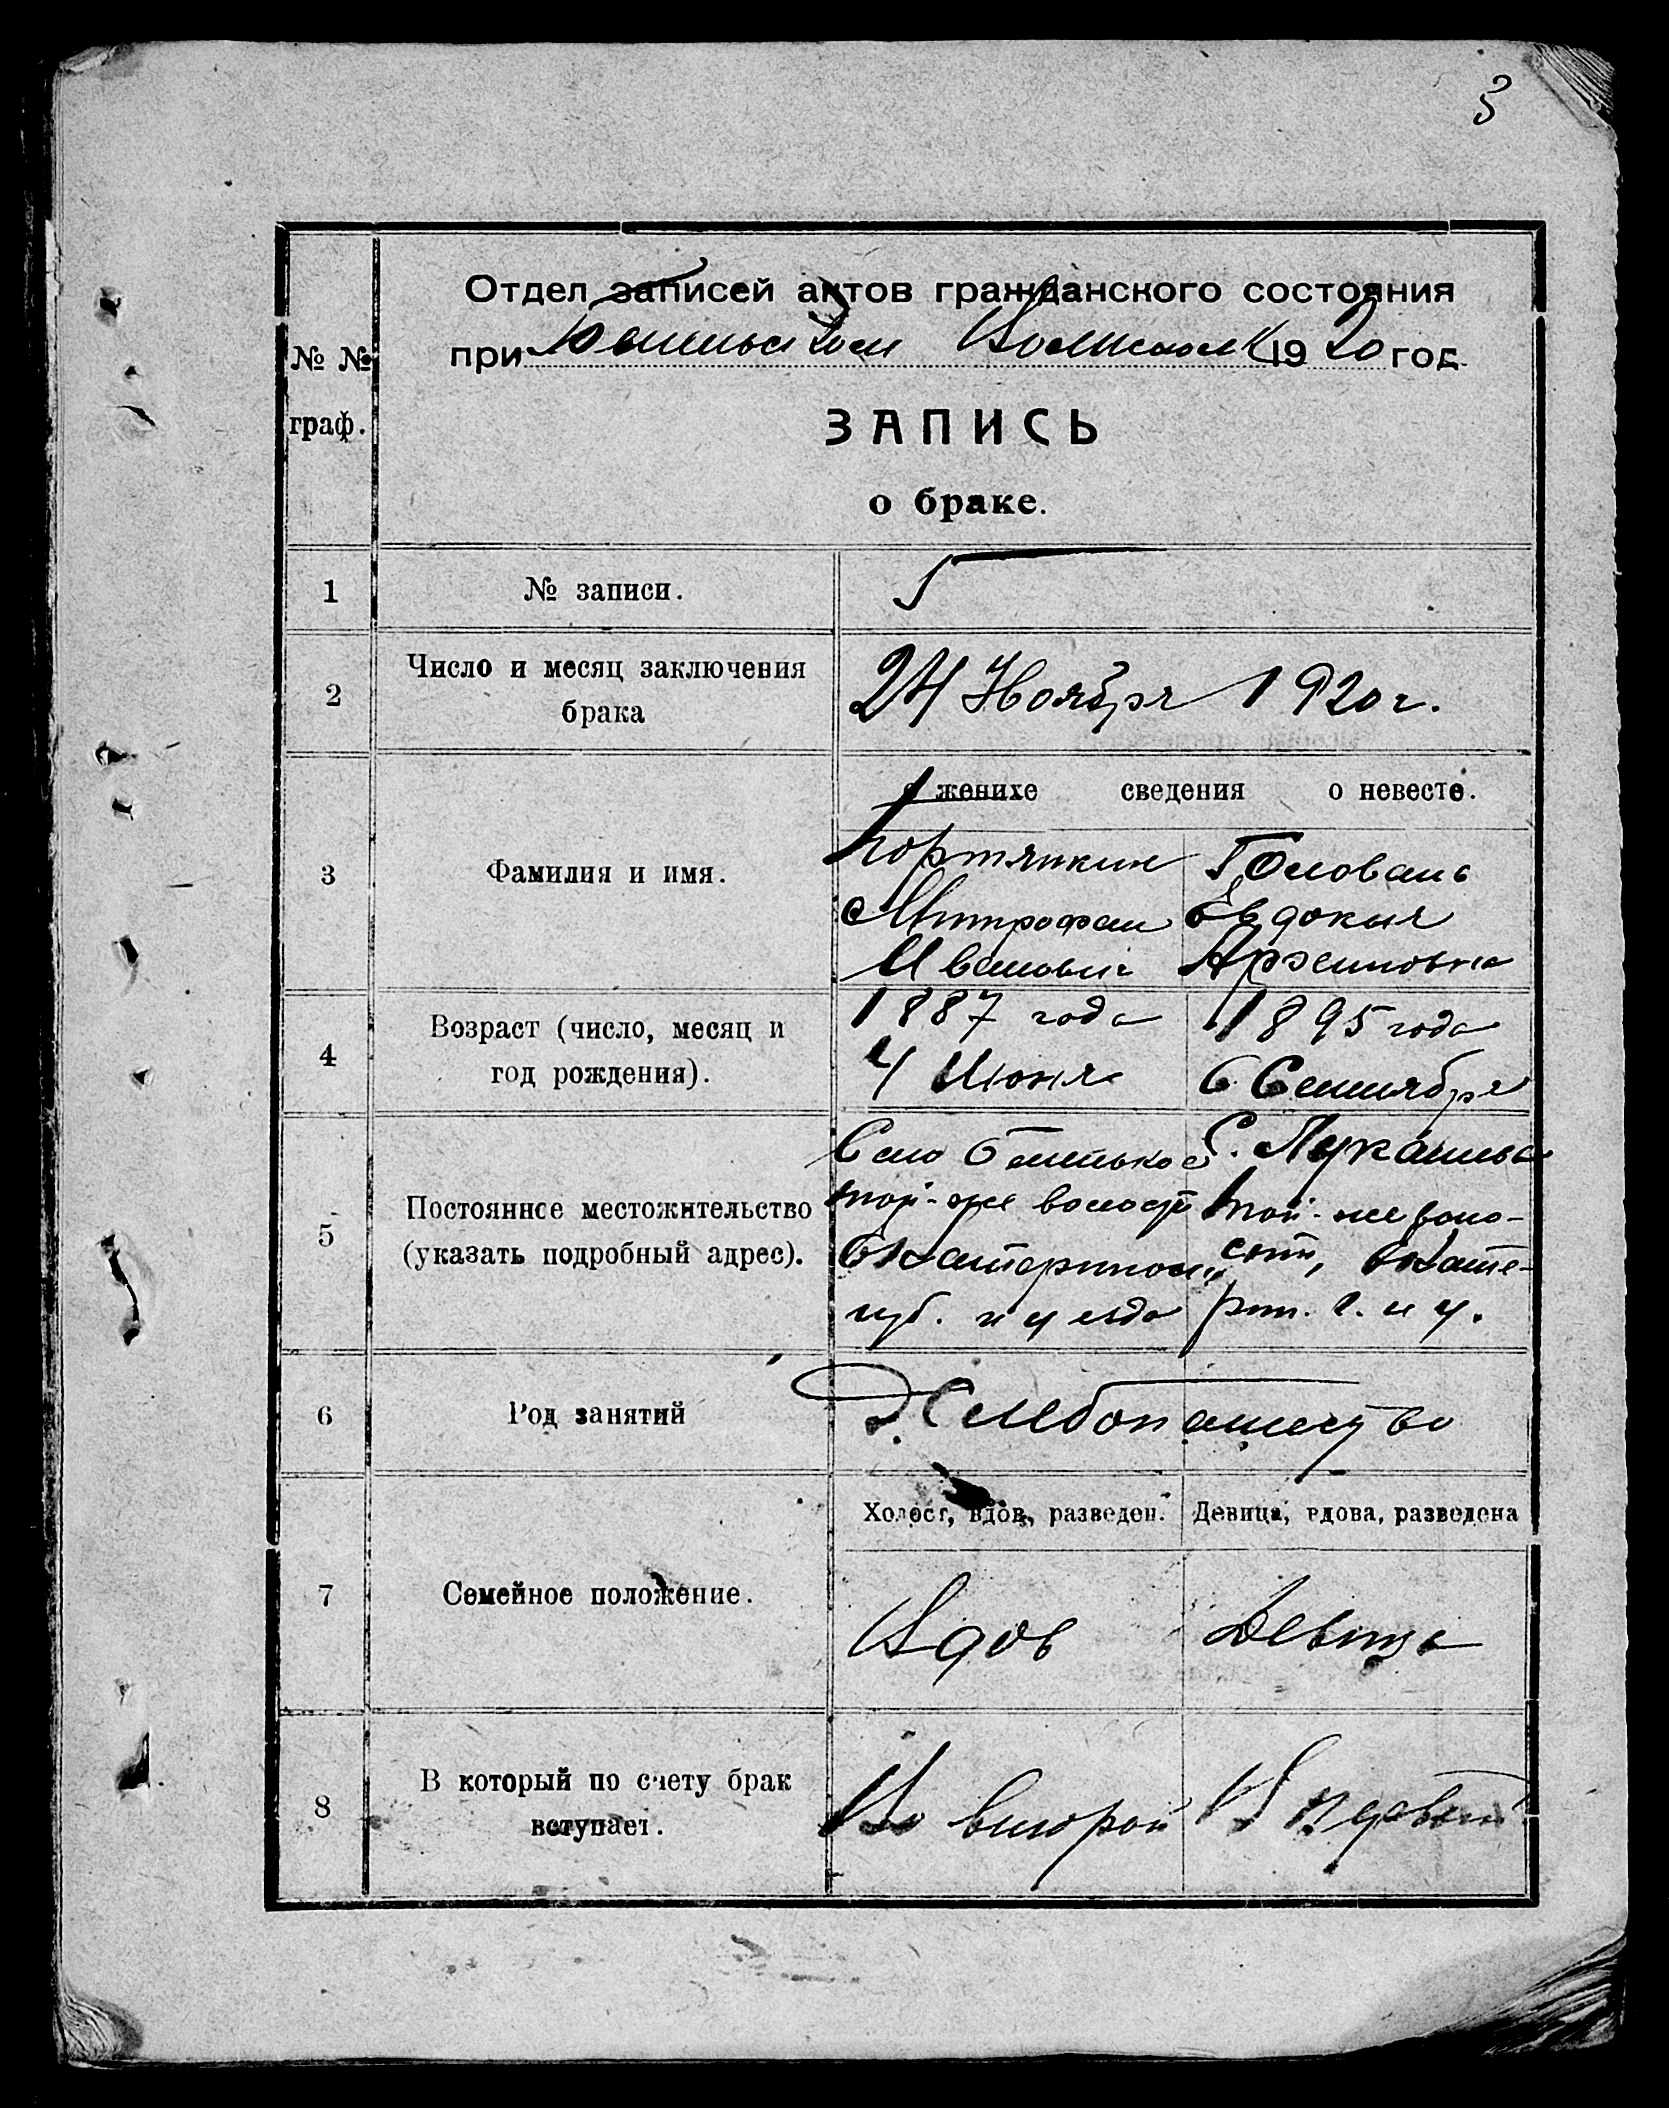 3
Отдел записей актов гражданского состояния
при Волисполк. 1920 год.
№ №
граф.
ЗАПИСЬ
о браке.
1 № записи. 5
2 Число и месяц заключения
брака
24 Ноября 1920 г.
о женихе сведения о невесте.
3 Фамилия и имя.
Портянкин
Митрофан
Иванович
Головань
Евдокия
4 Возраст (число, месяц и
год рождения).
1887 года
4 Июня
1895 года
6 Сентября
5 Постоянное местожительство
(указать подробный адрес).
Село
той-же волости
Екатеринос.
губ. и уезда
С. Лукашева
той-же воло-
сти, Екате-
рин. г. и у.
6 Род занятий
Хлебопашество
Холост, вдов, разведен. Девица, вдова, разведена
7 Семейное положение.
Вдов Девица
8 В который по счету брак
вступает.
Во второй В первый